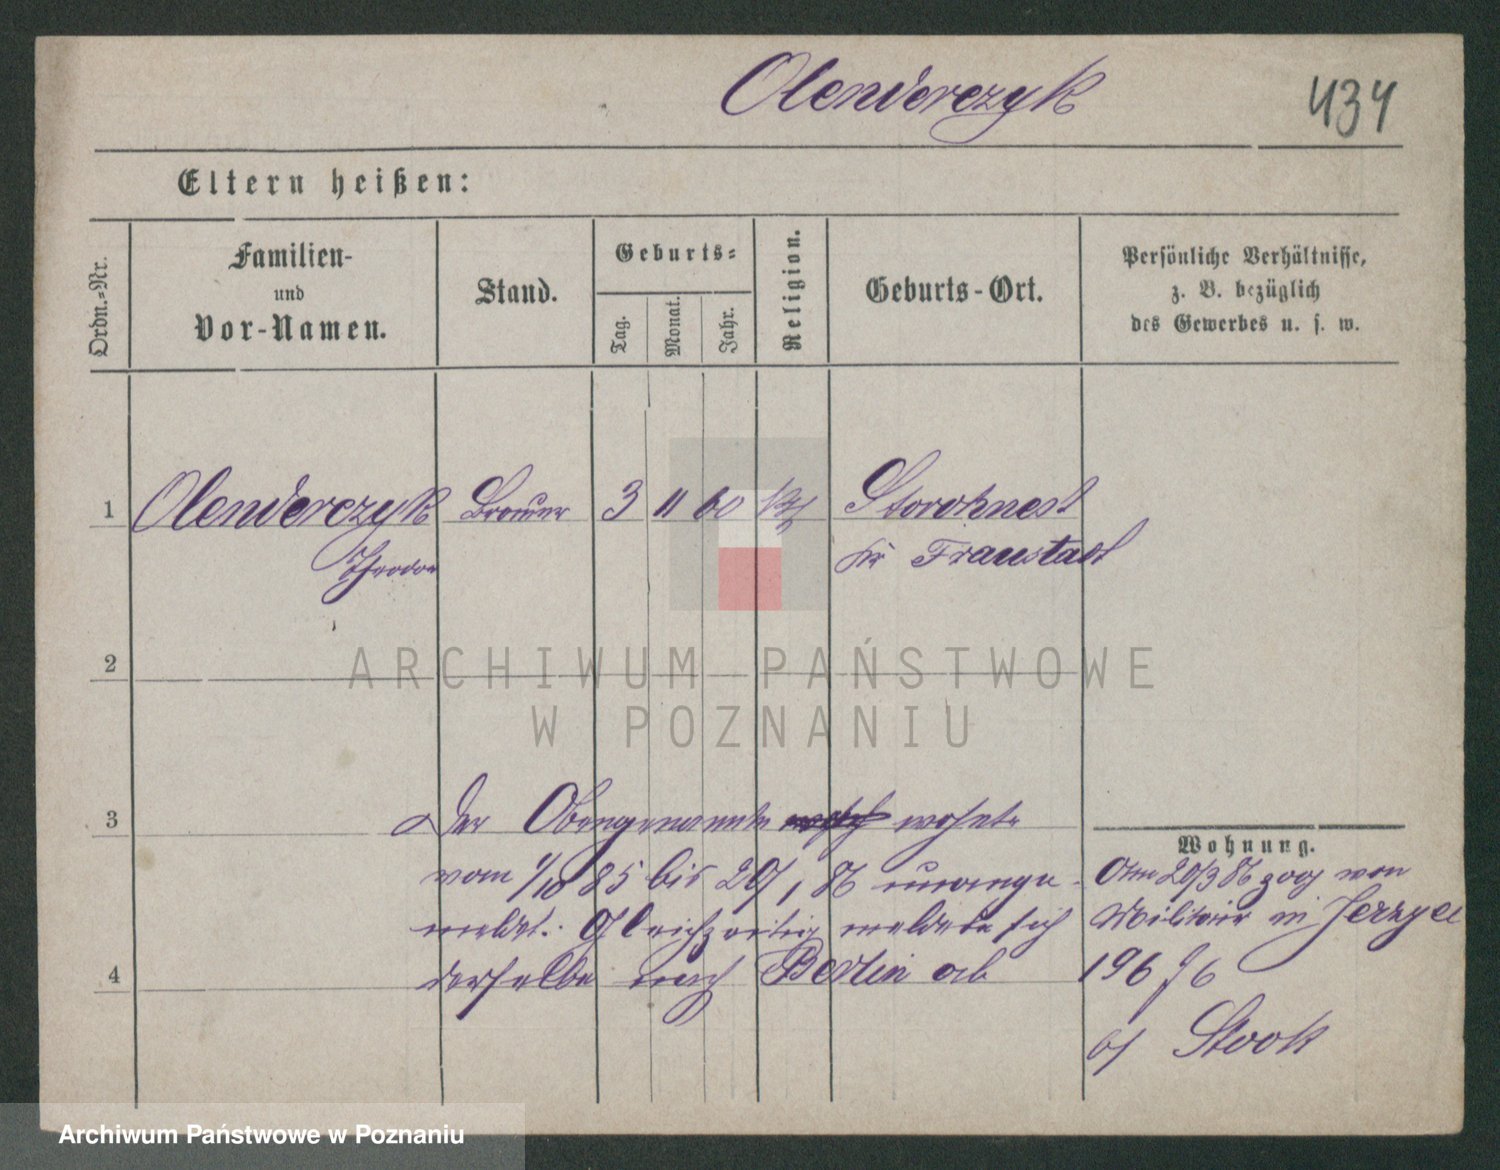 Olenderczyk
434
Eltern heißen:
Ordn.=Nr.
Familien-
und
Vor-Namen.
Stand.
Geburts=
Tag.
Monat.
Jahr.
Religion.
Geburts-Ort.
Persönliche Verhältnisse,
z. B. bezüglich
des Gewerbes u. s. w.
1 Olenderczyk Brauer 3 11 60 kth Storchnest
Theodor Kr Fraustadt
2
ARCHIWUM PAŃSTWOWE
W POZNANIU
3 Der Obengenannte wohnte
Wohnung.
vom 1/10 85 bis 20/1 86 unange-
meldet. Gleichzeitig meldete sich
4 derselbe nach Berlin ab
Am 20/3 86 zog von
Militair in Jerzyce
196
b/ Stock
Archiwum Państwowe w Poznaniu